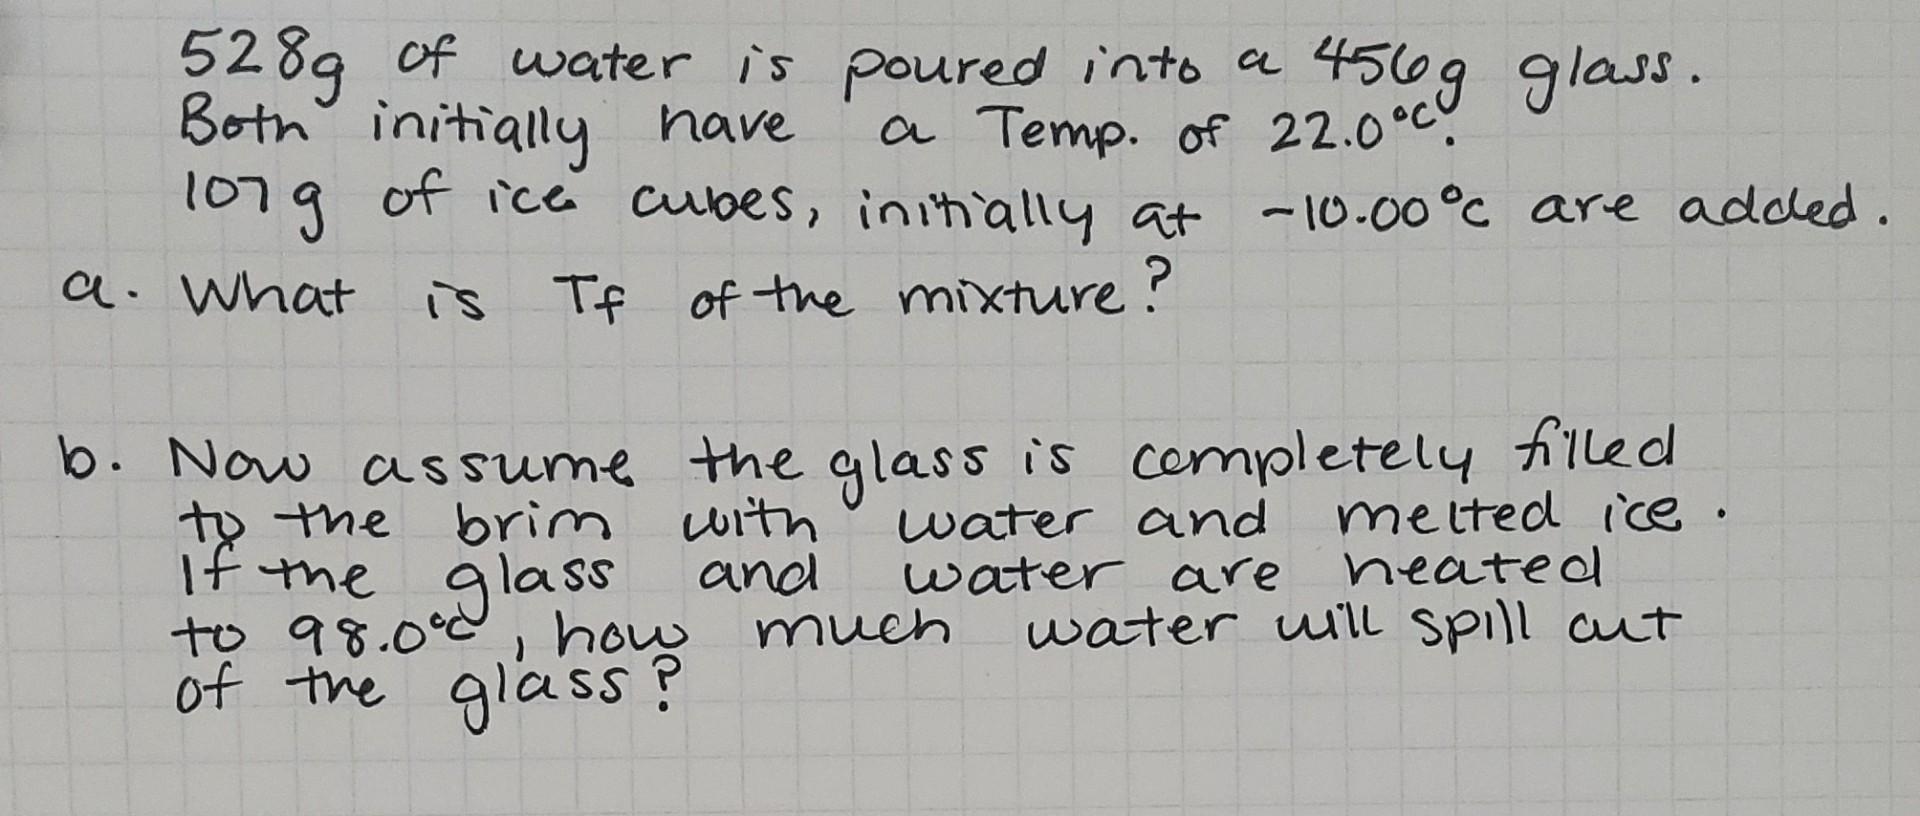 528g of water is poured into a 456g glass.
Both initially have a Temp. of 22.0°C.
107g of ice cubes, initially at -10.00°C are added.
a. What is Tf of the mixture?
b. Now assume the glass is completely filled
to the brim with water and melted ice.
If the glass and water are heated
to 98.0°C, how much water will spill out
of the glass?